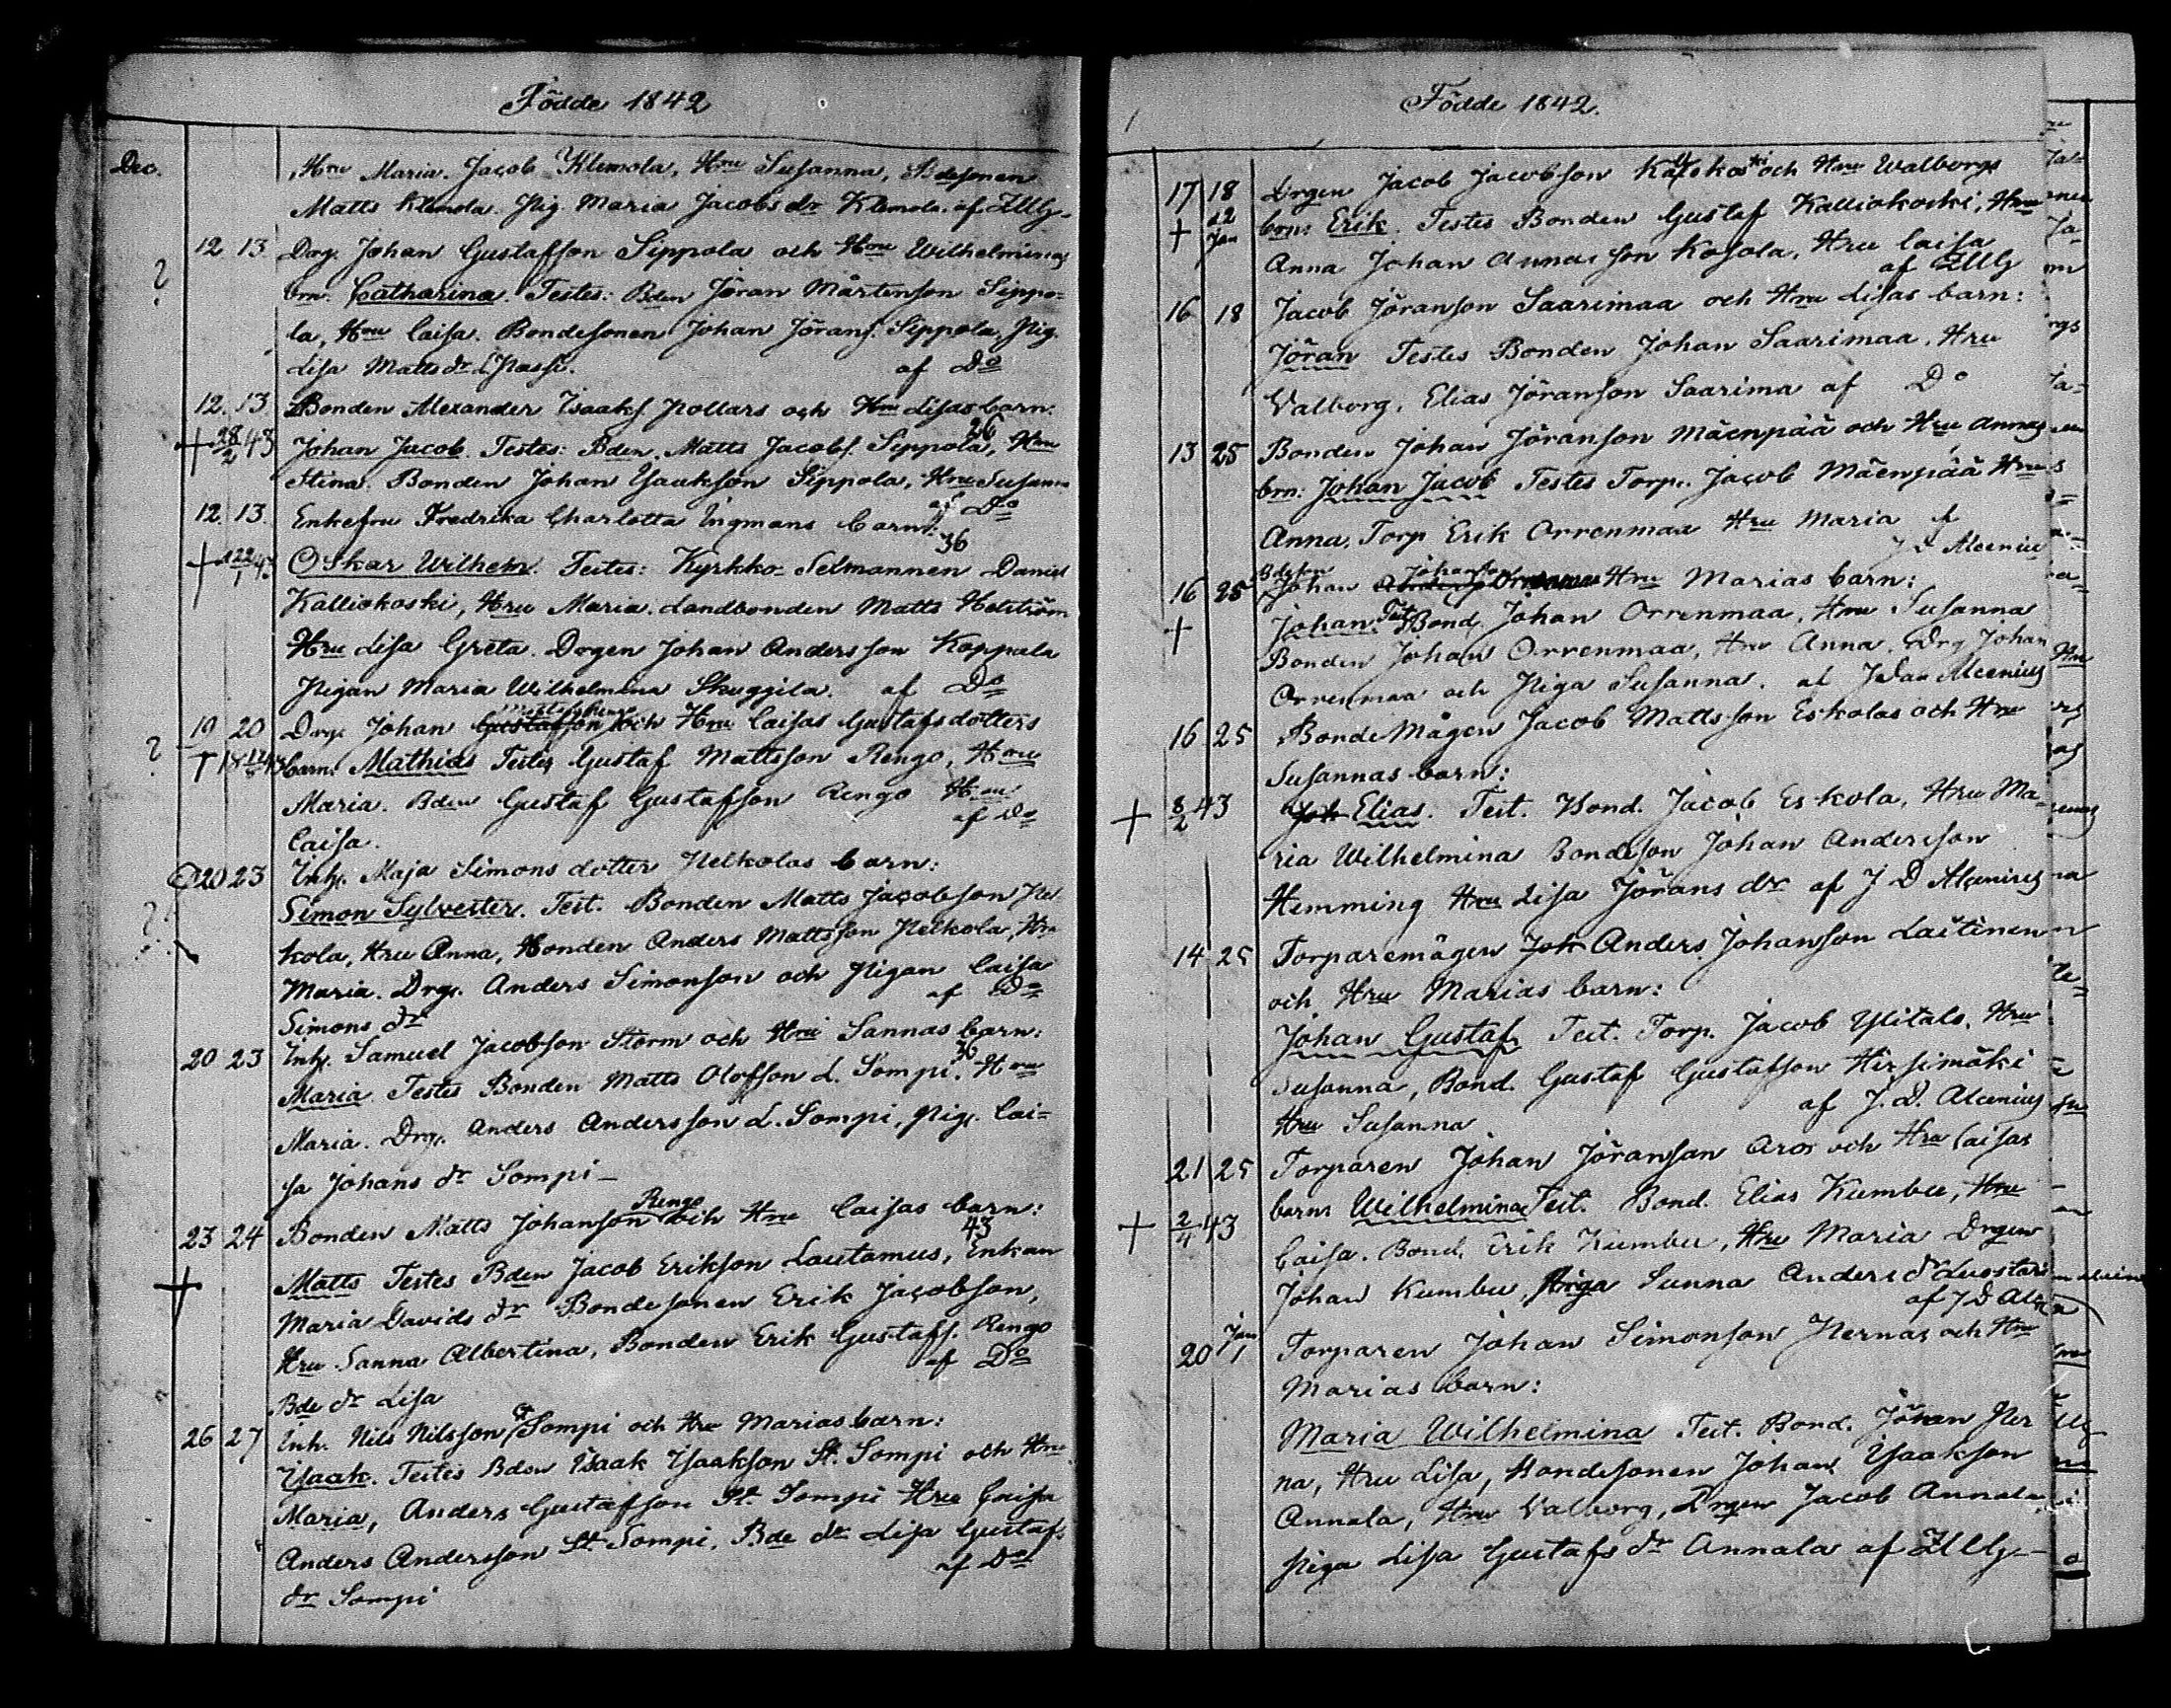 Födde 1842
Dec.
Hru Maria. Jacob Klemola, Hru Susanna, Bdesonen
Matts Klemola. Pig. Maria Jacobs dr Klemola. af
12 13 Drg. Johan Gustafsson Sippola och Hru Wilhelminas
? brn. Catharina. Testes: Bden Jöran Mårtenson Sippo=
la, Hru Caisa. Bondesonen Johan Jörans. Sippola, Pig.
Lisa Matts dr Passi. af Do
12. 13. Bonden Alexander Isaaks. Pollars och Hru Lisas barn.
26
+ 28/2 43 Johan Jacob. Testes: Bden. Matts Jacobs. Sippola, Hru
Stina. Bonden Johan Isaakson Sippola, Hru Susanna
af Do
12. 13. Enkefru Fredrika Charlotta Ingmans barn:
36
+ 22/1 43 Oskar Wilhem. Testes: Kyrkko-Selmannen Daniel
Kalliokoski, Hru Maria. Landbonden Matts Holström
Hru Lisa Greta. Drgen Johan Andersson Koppala
Pigan Maria Wilhelmina Skuggila. af Do
19 20 Drg. Johan Gustafsson och Hru Caisas Gustafsdotters
? + 18 barn: Mathias Testes Gustaf Mattsson Rengo, Hru
Maria. Bden Gustaf Gustafsson Rengo Hru
Caisa. af Do
20 23 Inh. Maja Simons dotter Heikolas barn:
? Simon Sylvester. Test. Bonden Matts Jacobson Hei
kola, Hru Anna, Bonden Anders Mattsson Heikola, Hru
Maria. Drg. Anders Simonson och Pigan Caisa
Simons dr af Do
20 23 Inh. Samuel Jacobson Storm och Hru Sannas barn:
36
Maria Testes Bonden Matts Olofsson L. Sompi. Hru
Maria. Drg. Anders Andersson L. Sompi, Pig. Cai=
sa Johans dr Sompi _
Rengo
23 24 Bonden Matts Johanson och Hru Caisas barn:
43
+ Matts Testes Bden Jacob Erikson Lautamus, Enkan
Maria Davids dr Bondesonen Erik Jacobson,
Hru Sanna Albertina, Bonden Erik Gustafs. Rengo
Bde dr Lisa af Do
26 27 Inh. Nils Nilsson St Sompi och Hru Marias barn:
Isaak. Testes Bden Isaak Isaakson St. Sompi och Hru
Maria, Anders Gustafson St. Sompi Hru Caisa
Anders Andersson St. Sompi. Bde dr Lisa Gustafs
dr Sompi af Do
Födde 1842.
17 18 Drgen Jacob Jacobson och Hru Walborgs
+ 12 Jan brn: Erik. Testes Bonden Gustaf Kalliokoski, Hru
Anna Johan son Kosola, Hru Caisa
af
16 18 Jacob Jöranson Saarimaa och Hru Lisas barn:
Jöran Testes Bonden Johan Saarimaa. Hru
Valborg. Elias Jöranson Saarima af Do
13 25 Bonden Johan Jöranson Mäenpää och Hru Annas
brn: Johan Jacob Testes Torp. Jacob Mäenpää Hru
Anna. Torp Erik Orrenmaa Hru Maria af
J D Alcenius
Bdeson Johanson
16 25 Johan Orrenmaa Hru Marias barn:
+ Johan. Test Bond. Johan Orrenmaa, Hru Susanna
Bonden Johan Orrenmaa, Hru Anna. Drg Johan
Orrenmaa och Piga Susanna. af J Dan Alcenius
16 25 Bonde Mågen Jacob Mattsson Eskolas och Hru
Susannas barn:
+ 8/2 43 Joh Elias. Test. Bond. Jacob Eskola, Hru Ma=
ria Wilhelmina Bondeson Johan Andersson
Hemming Hru Lisa Jörans dr af J D Alcenius
14 25 Torparemågen Joh Anders Johanson Laitinen
och Hru Marias barn:
Johan Gustaf. Test. Torp. Jacob Ylitalo, Hru
Susanna, Bond. Gustaf Gustafson Hirsimäki
Hru Susanna af J. D. Alcenius
21 25 Torparen Johan Jöranson Aros och Hru Caisas
barn: Wilhelmina Test. Bond. Elias Kumbu, Hru
+ 2/4 43 Caisa. Bond. Erik Kumbu, Hru Maria Drgen
Johan Kumbu, Piga Sanna Anders dr
af J D Alc
20 Jan 1 Torparen Johan Simonson Pernas och Hru
Marias barn:
Maria Wilhelmina Test. Bond. Johan Per
na, Hru Lisa, Bondesonen Johan Isaakson
Annala, Hru Valborg, Drgen Jacob Annala
Piga Lisa Gustafs dr Annala af